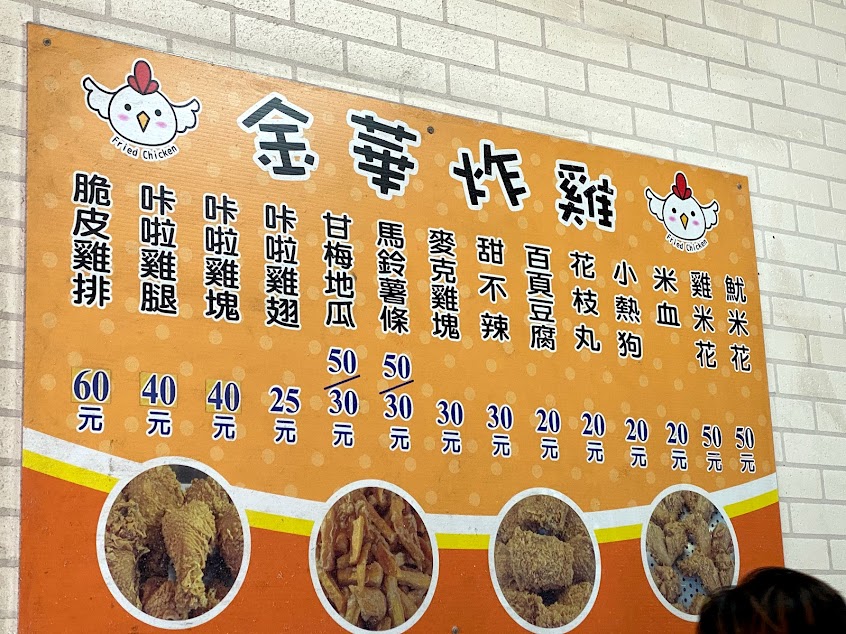 金華炸雞
Fried Chicken
Fried Chicken
脆皮雞排 60元
咔啦雞腿 40元
咔啦雞塊 40元
咔啦雞翅 25元
甘梅地瓜 50/30元
馬鈴薯條 50/30元
麥克雞塊 30元
甜不辣 30元
百頁豆腐 20元
花枝丸 20元
小熱狗 20元
米血 20元
雞米花 50元
魷米花 50元